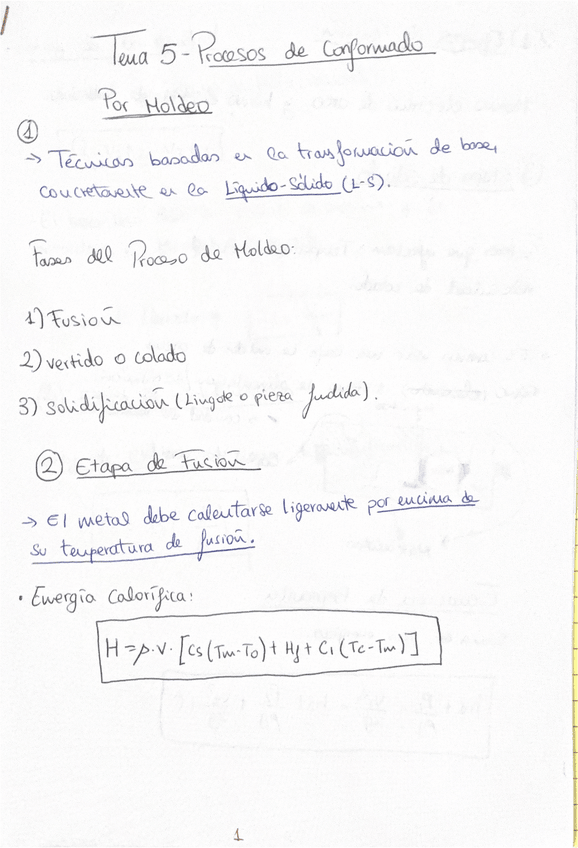 Tema 5 - Procesos de Conformado
Por Moldeo
①
→ Técnicas basadas en la transformación de base,
concretamente en la Líquido-Sólido (L-S).
Fases del Proceso de Moldeo:
1) Fusión
2) vertido o colado
3) Solidificación (Lingote o pieza fundida).
② Etapa de Fusión
→ El metal debe calentarse ligeramente por encima de
su temperatura de fusión.
· Energía Calorífica:
H = ρ · V · [Cs (Tm - To) + Hf + Cl (Tc - Tm)]
1